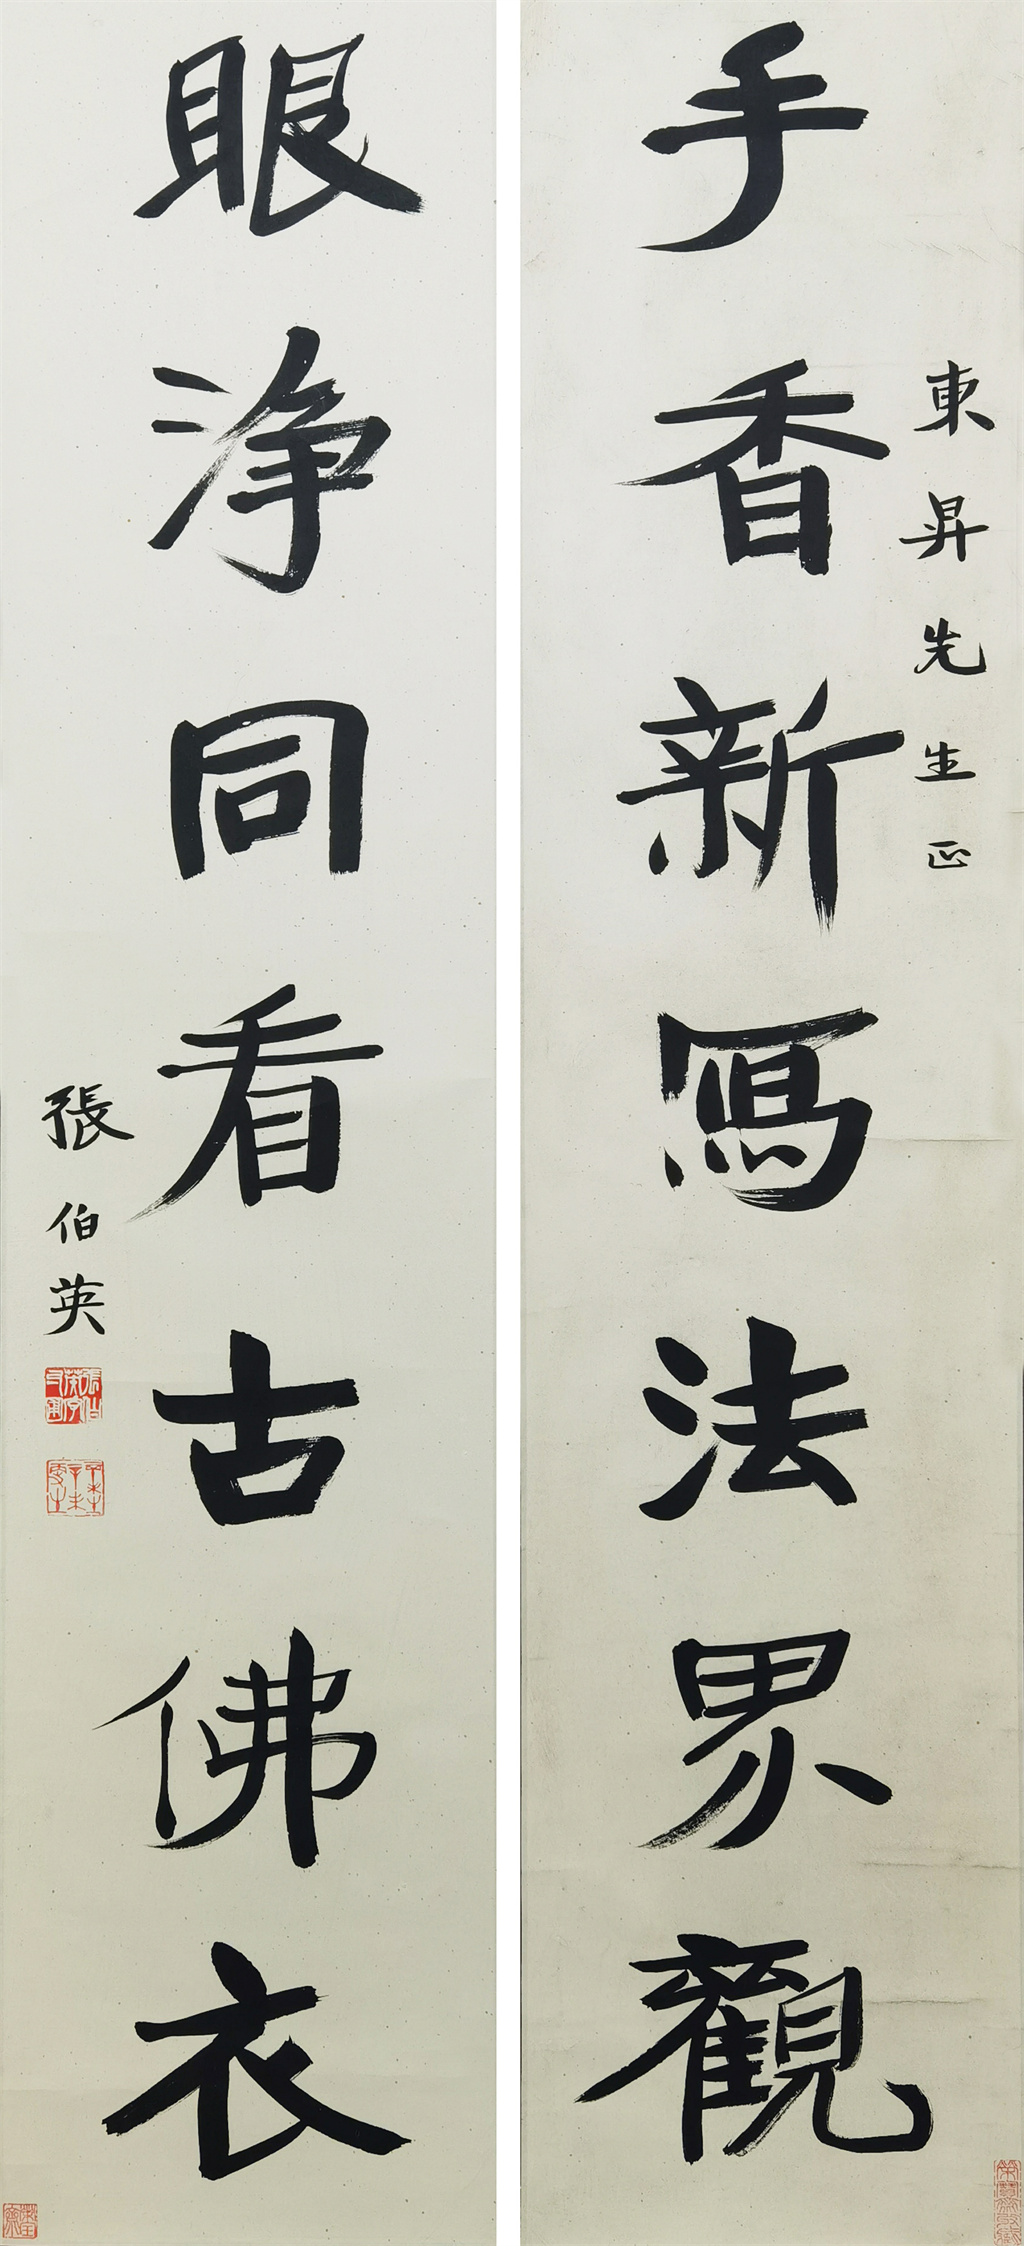 手香新寫法界觀
東昇先生正
眼淨同看古佛衣
張伯英